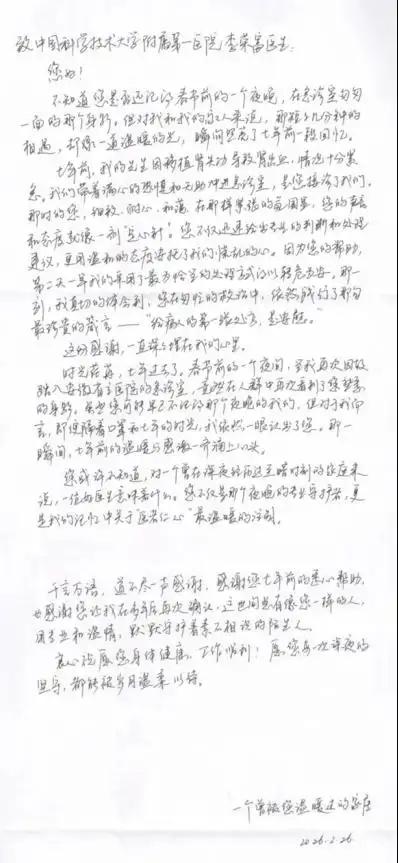 致中国科学技术大学附属第一医院 李荣富医生:
您好!
不知道您是否还记得春节前的一个夜晚,在急诊室匆匆
一面的那个身影。但对我和我的家人来说,那短短几分钟的
相遇,却像一道温暖的光,瞬间照亮了七年前一段回忆。
七年前,我的先生因移植肾失功导致肾出血,情况十分紧
急。我们带着满心的恐惧和无助冲进急诊室,是您接诊了我们。
那时的您,细致、耐心、和蔼,在那样紧张的氛围里,您的声音
和态度就像一剂"定心针"。您不仅迅速给出专业的判断和处理
建议,更用温和的态度安抚了我们慌乱的心。因为您的帮助,
第二天一早我的家用了最为恰当的处理方式得以转危为安。那一
刻,我真切的体会到,您在匆忙的救治中,依然践行了那句
最珍贵的箴言——"给病人的第一张处方,是安慰。"
这份感谢,一直深深埋在我们心里。
时光荏苒,七年过去了,春节前的一个夜间,当我再次因故
踏入安徽省立医院的急诊室,竟然在人群中再次看到了您熟悉
的身影。虽然您可能早已不记得那个夜晚的我们,但对于我而
言,即便隔着口罩和七年的时光,我依然一眼认出了您。那一
瞬间,七年前的温暖与感激一齐涌上心头。
您或许不知道,对一个曾在深夜经历过至暗时刻的家庭来
说,一位好医生意味着什么。您不仅是那个夜晚的专业守护者,更
是我的记忆中关于"医者仁心"最温暖的注脚。
千言万语,道不尽一声感谢。感谢您七年前的悉心帮助,
也感谢您让我在多年后再次确认,这世间总有像您一样的人,
用专业和温情,默默守护着素不相识的陌生人。
衷心祝愿您身体健康,工作顺利!愿您每一次深夜的
坚守,都能被岁月温柔以待。
一个曾被您温暖过的家庭
2026.2.26